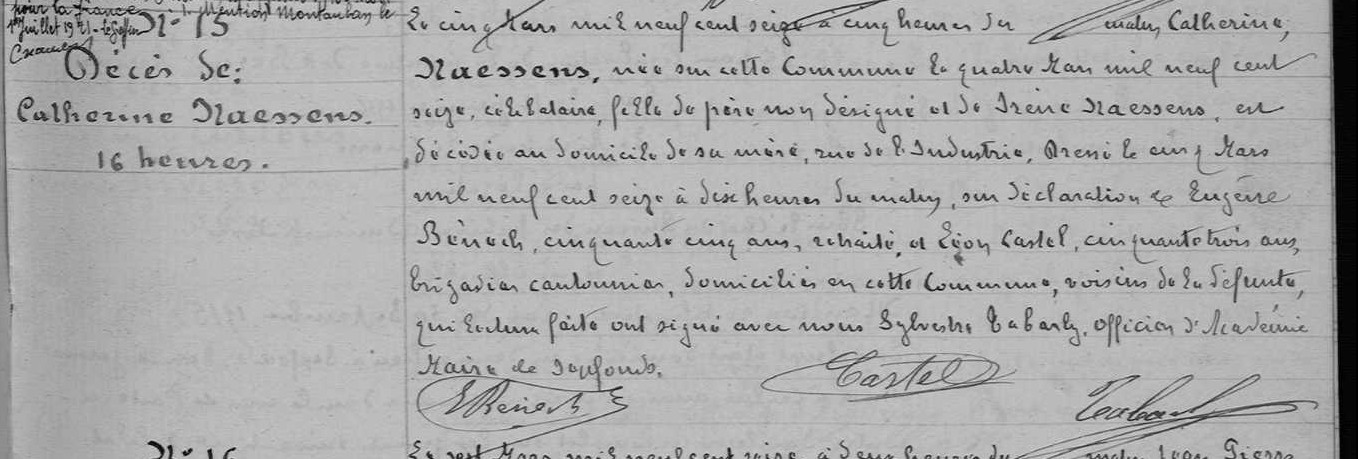 pour la france Mention Montauban le
1er juillet 1921 - le Greffier
N° 15
Décès de:
Catherine Naessens.
16 heures.
Le cinq Mars mil neuf cent seize à cinq heures du matin, Catherine,
Naessens, née sur cette Commune le quatre Mars mil neuf cent
seize, célibataire, fille de père non désigné et de Irène Naessens, est
décédée au domicile de sa mère, rue de l'Industrie, Dressé le cinq Mars
mil neuf cent seize à dix heures du matin, sur déclaration de Eugène
Bénech, cinquante cinq ans, retraité, et Léon Castel, cinquante trois ans,
brigadier cantonnier, domiciliés en cette Commune, voisins de la défunte,
qui lecture faite ont signé avec nous Sylvestre Tabarly, officier d'Académie
Maire de Septfonds.
EBenech Castel Tabarly
N° 16
Le sept Mars mil neuf cent seize, à deux heures du matin Jean Pierre